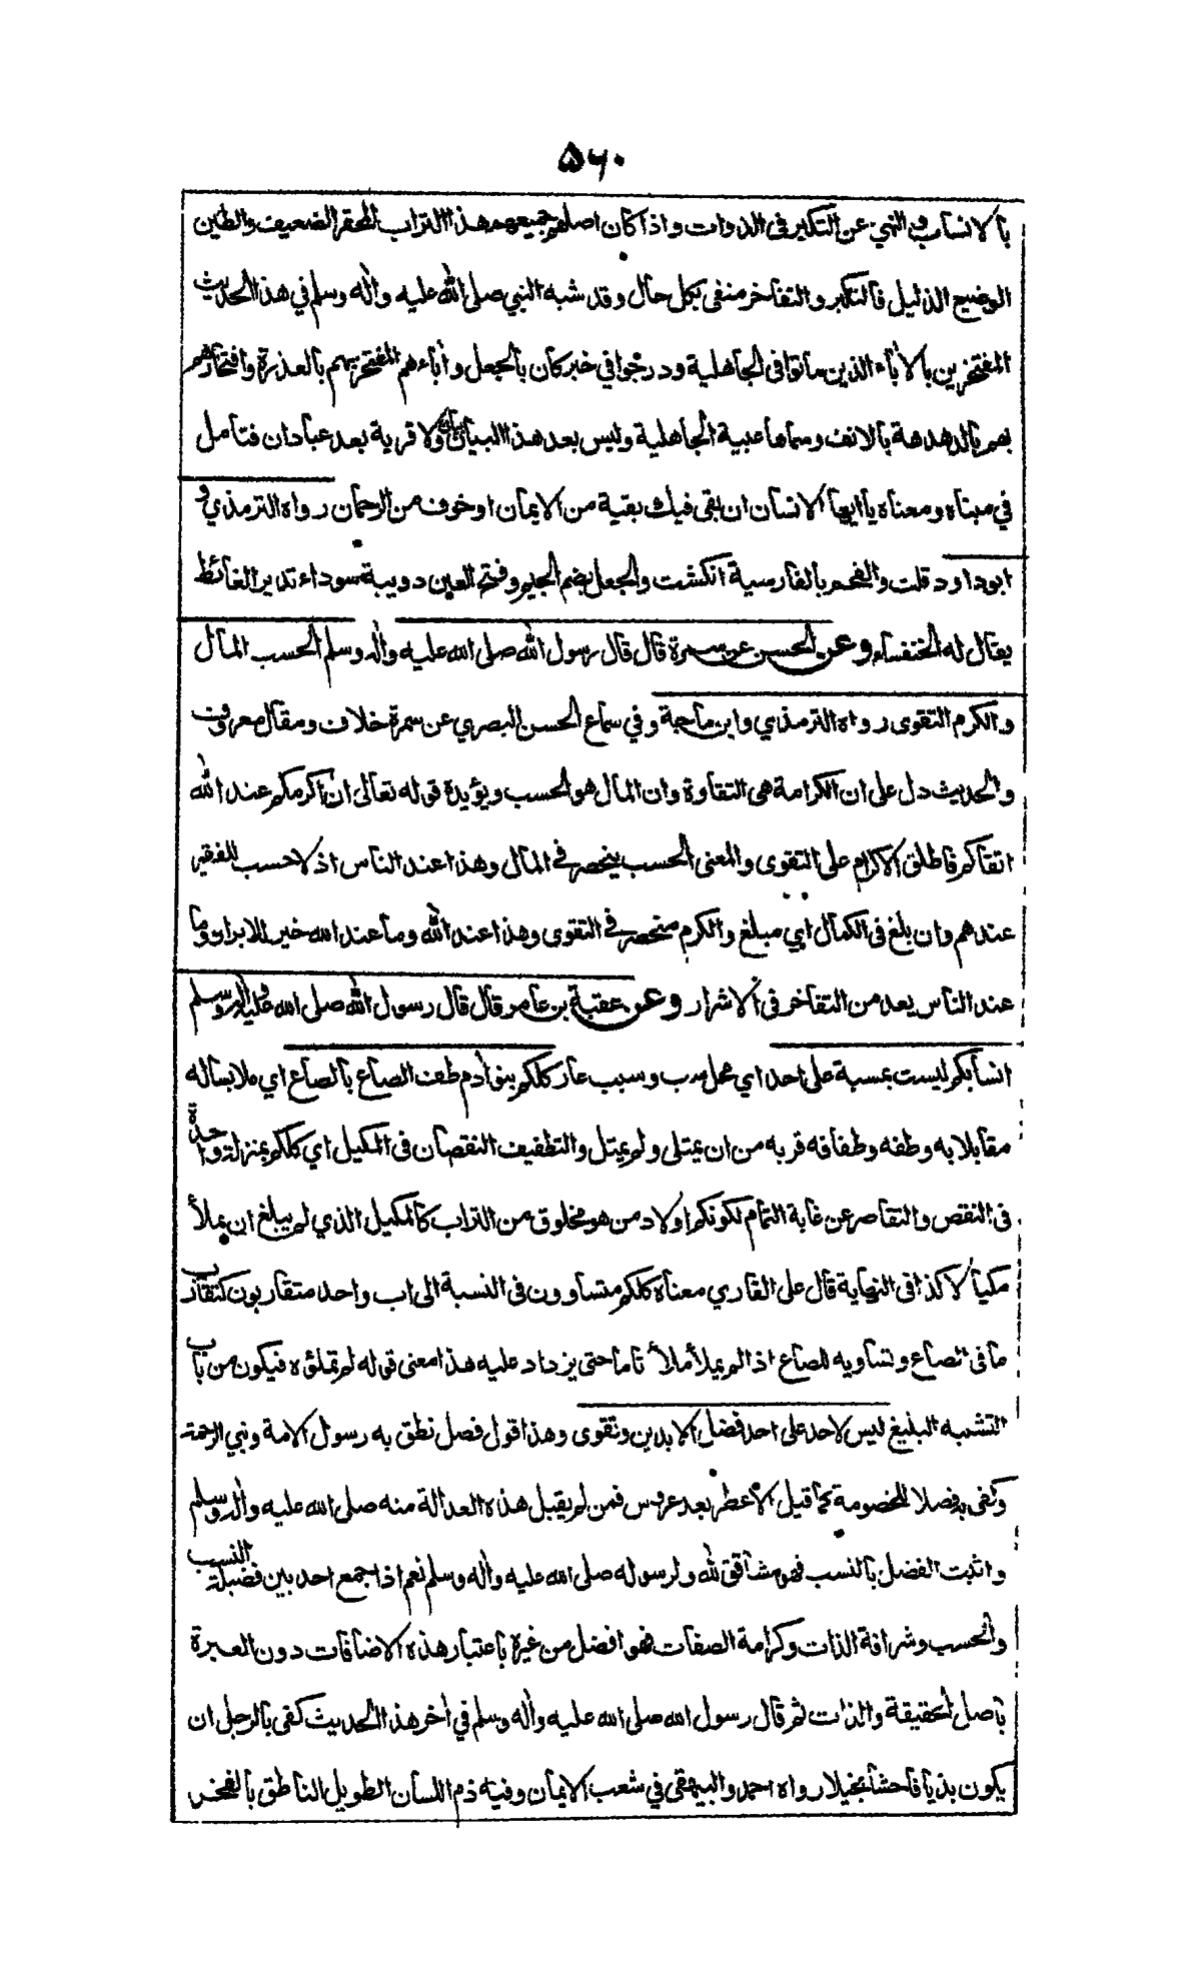 ۵۶۰
بالانساب والنهي عن التكبر فى الذوات واذا كان اصلهم جميعهم هذا التراب المحقر الضعيف والطين
الوضيع الذليل فالتكبر والتفاخر منفى بكل حال وقد شبه النبي صلى الله عليه واٰله وسلم في هذا الحديث
المفتخرين بالاٰباء الذين ماتوا فى الجاهلية ودرجوا في خبر كان بالجعل واٰباءهم المفتخر بهم بالعذرة وافتخارهم
بهم بالدهدهة بالانف وسماها عبية الجاهلية وليس بعد هذا البيان بيان ولا قرية بعد عبادان فتأمل
في مبناه ومعناه يا ايها الانسان ان بقى فيك بقية من الايمان او خوف من الرحمٰن رواه الترمذي و
ابوداود قلت والفحم بالفارسية انكشت والجعل بضم الجيم وفتح العين دويبة سوداء تدير الغائط
يقال له الخنفساء وعن الحسن عن سمرة قال قال رسول الله صلى الله عليه واٰله وسلم الحسب المال
والكرم التقوى رواه الترمذي وابن ماجة وفي سماع الحسن البصري عن سمرة خلاف ومقال معروف
والحديث دل على ان الكرامة هى التقاوة وان المال هو الحسب ويؤيده قوله تعالى ان اكرمكم عند الله
اتقاكم فاطلق الاكرام على التقوى والمعنى الحسب ينحصر في المال وهذا عند الناس اذ لا حسب للفقير
عندهم وان بلغ فى الكمال اي مبلغ والكرم منحصر في التقوى وهذا عند الله وما عند الله خير للابرار وما
عند الناس يعد من التفاخر فى الاشرار وعن عقبة بن عامر قال قال رسول الله صلى الله عليه واٰله وسلم
انسابكم ليست بمسبة على احد اي محل سب وسبب عار كلكم بنو اٰدم طف الصاع بالصاع اي
مقابلا به وطفه وطفافه قربه من ان يمتلى ولم يمتل والتطفيف النقصان فى المكيل اي كلكم بمنزلة واحدة
فى النقص والتقاصر عن غاية التمام لكونكم اولاد من هو مخلوق من التراب كالمكيل الذي لم يبلغ ان يملأ
مكيالا كذا فى النهاية قال على القاري معناه كلكم متساوون فى النسبة الى اب واحد متقاربون كتقارب
ما فى الصاع وتساويه للصاع اذا لم يملأ ملأ تاما حتى يزداد عليه هذا معنى قوله لم تملئوه فيكون من باب
التشبه البليغ ليس لاحد على احد فضل الا بدين وتقوى وهذا قول فصل نطق به رسول الامة ونبي الرحمة
وكفى به فصلا للخصومة كما قيل لا عطر بعد عروس فمن لم يقبل هذه العدالة منه صلى الله عليه واٰله وسلم
واثبت الفضل بالنسب فهو مشاقق لله ولرسوله صلى الله عليه واٰله وسلم نعم اذا جمع احد بين فضيلة النسب
والحسب وشرافة الذات وكرامة الصفات فهو افضل من غيره باعتبار هذه الاضافات دون العبرة
باصل الحقيقة والذات ثم قال رسول الله صلى الله عليه واٰله وسلم في اٰخر هذا الحديث كفى بالرجل ان
يكون بذيا فاحشا بخيلا رواه احمد والبيهقى في شعب الايمان وفيه ذم اللسان الطويل الناطق بالفخر